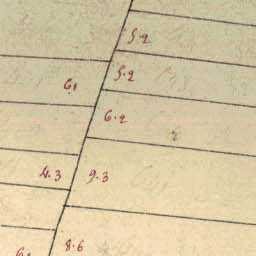 5.2
5.2
6.2
4.3 9.3
8.6